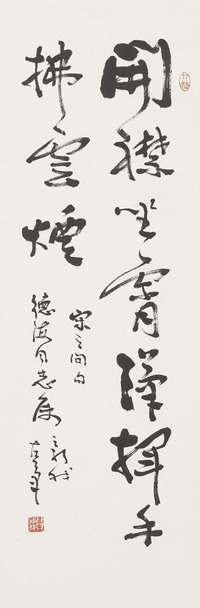 開襟坐霄漢揮手
拂雲煙
宋之問句
德海同志属